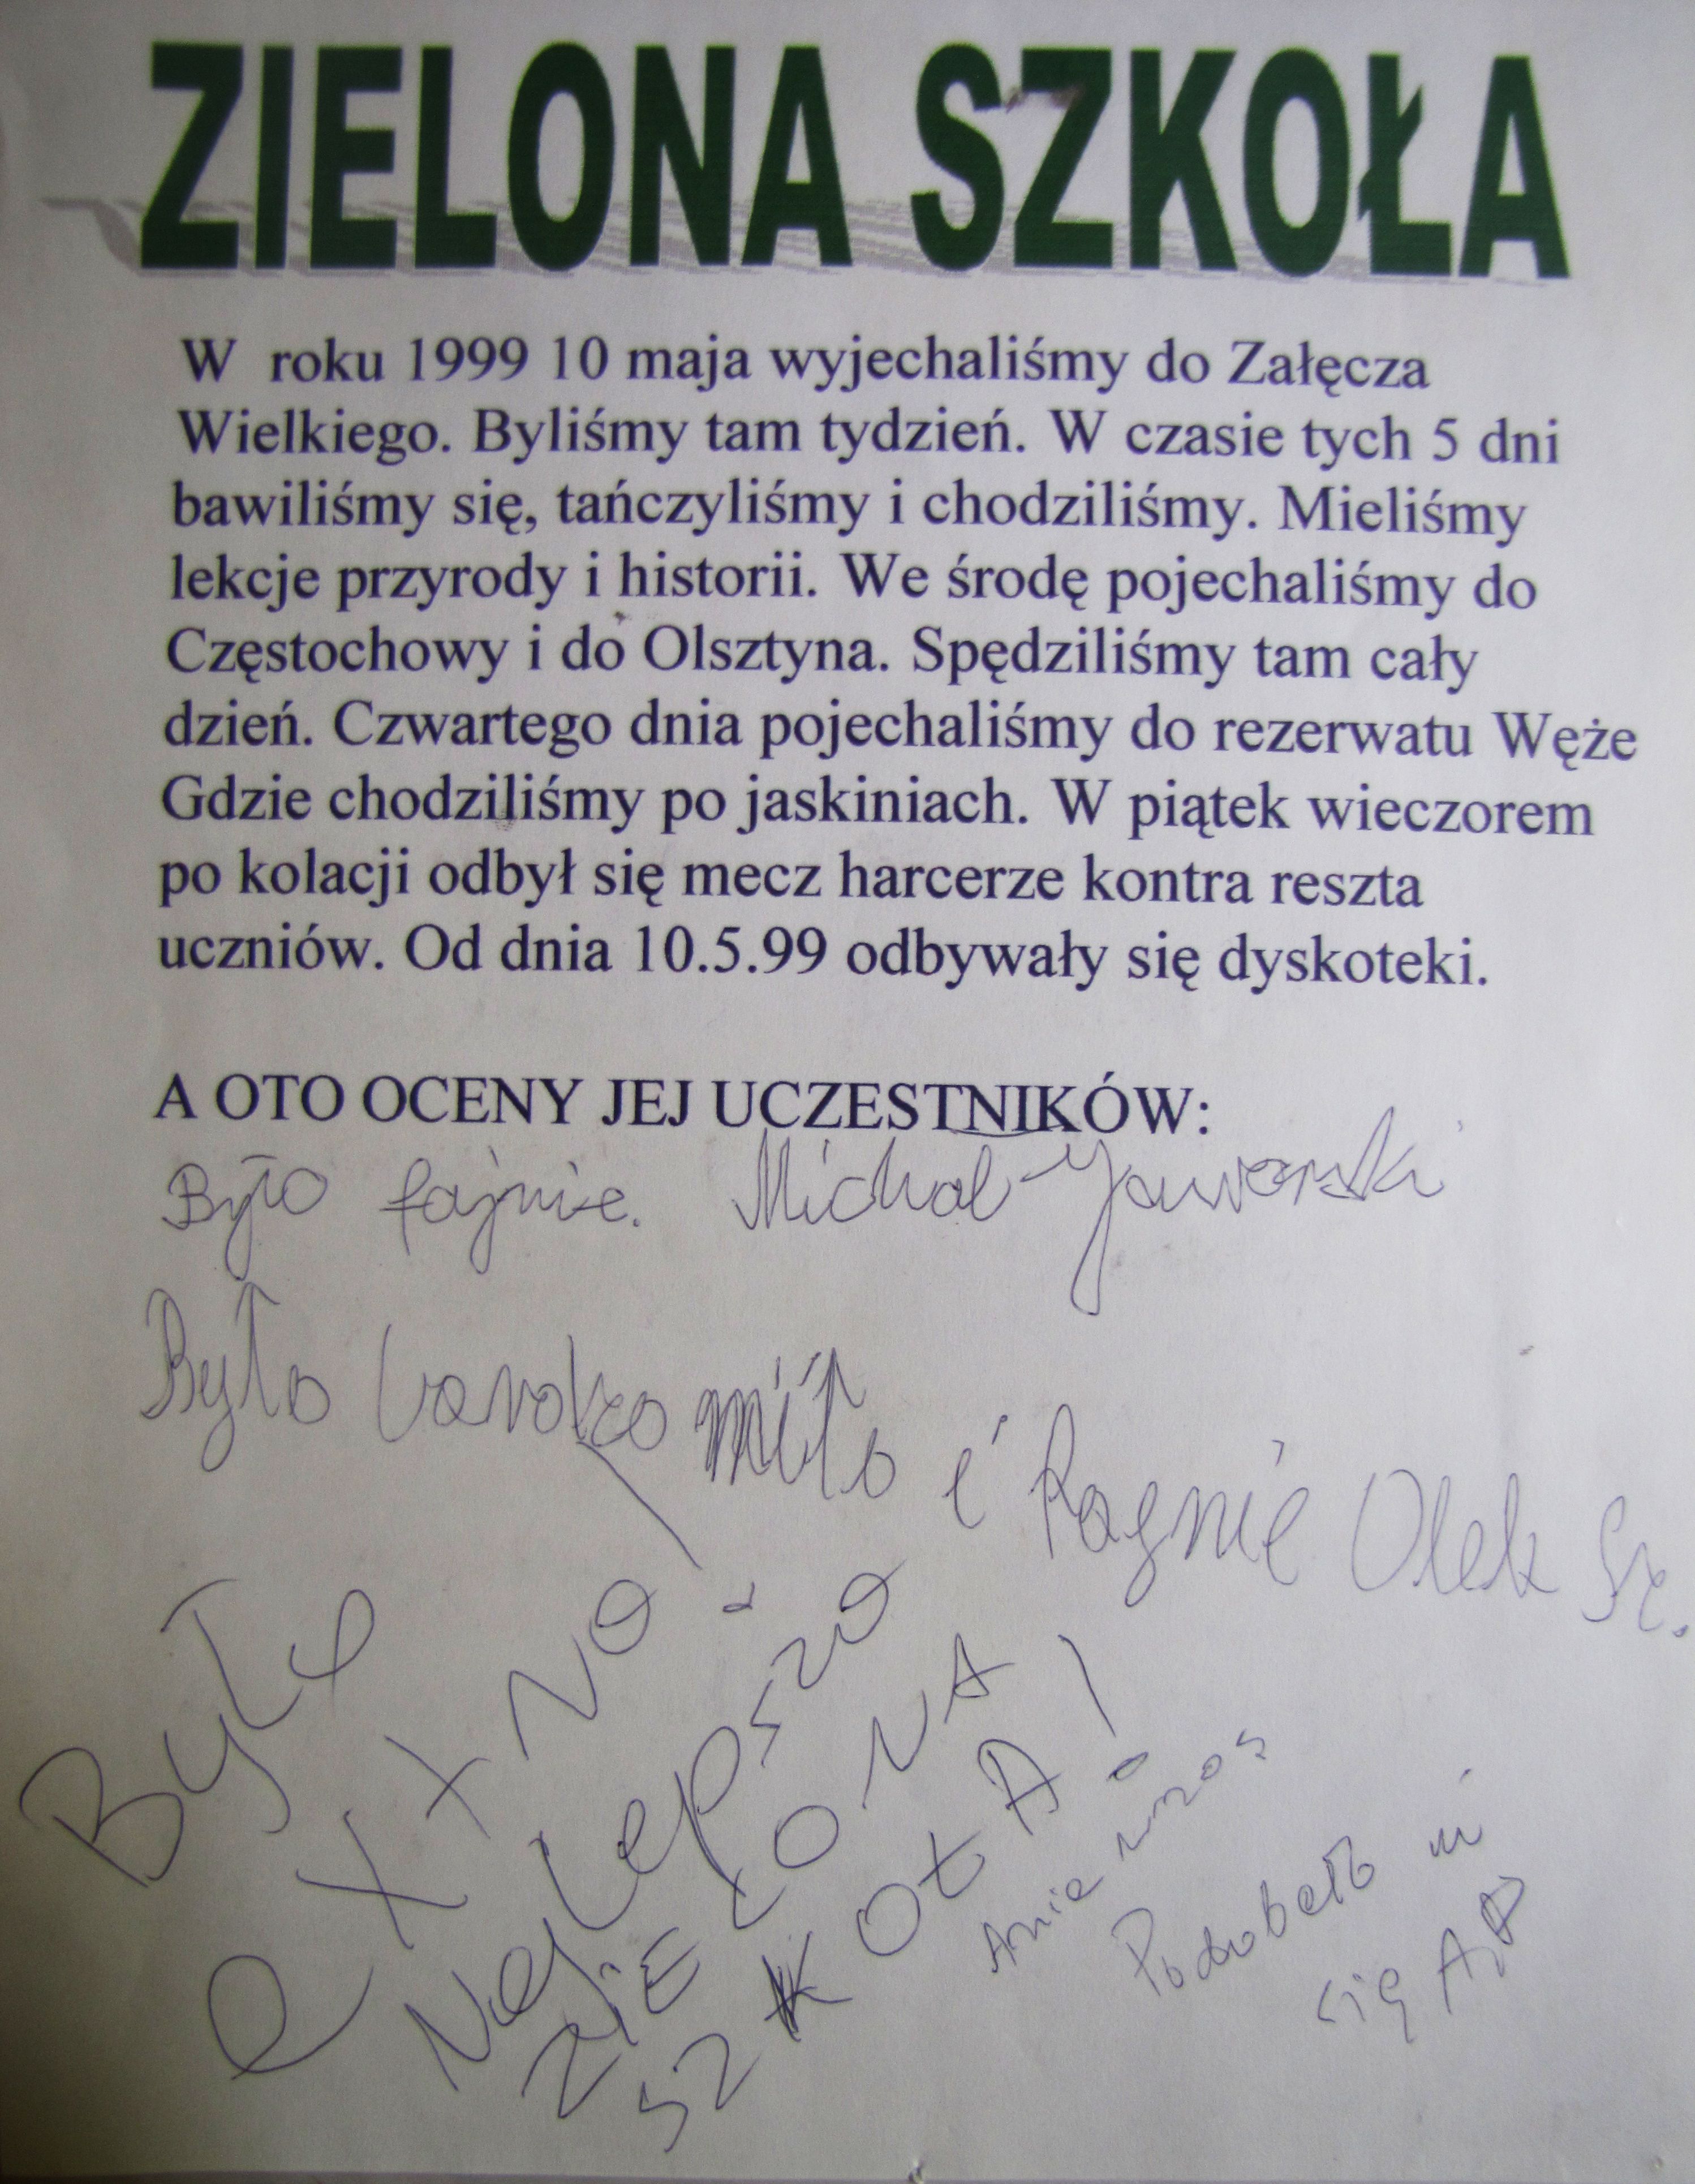 ZIELONA SZKOŁA
W roku 1999 10 maja wyjechaliśmy do Załęcza
Wielkiego. Byliśmy tam tydzień. W czasie tych 5 dni
bawiliśmy się, tańczyliśmy i chodziliśmy. Mieliśmy
lekcje przyrody i historii. We środę pojechaliśmy do
Częstochowy i do Olsztyna. Spędziliśmy tam cały
dzień. Czwartego dnia pojechaliśmy do rezerwatu Węże
Gdzie chodziliśmy po jaskiniach. W piątek wieczorem
po kolacji odbył się mecz harcerze kontra reszta
uczniów. Od dnia 10.5.99 odbywały się dyskoteki.
A OTO OCENY JEJ UCZESTNIKÓW:
Było fajnie. Michał Jaworski
Było bardzo miło i Olek Sz.
Było
EXTRA!
Najlepsza
ZIELONA
SZKOŁA!
Ania
Podobało mi
się